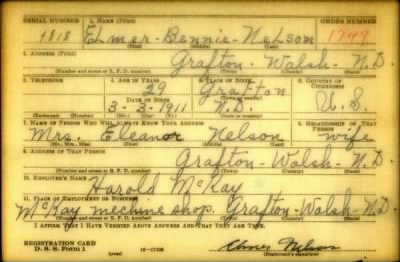 SERIAL NUMBER 1. NAME (Print) ORDER NUMBER
1818 Elmer - Bennie - Nelson 1749
(First) (Middle) (Last)
2. ADDRESS (Print)
Grafton - Walsh - N.D.
(Number and street or R. F. D. number) (Town) (County) (State)
3. TELEPHONE 4. AGE IN YEARS 5. PLACE OF BIRTH 6. COUNTRY OF CITIZENSHIP
29 Grafton
DATE OF BIRTH (Town or county)
3-3-1911 N.D. U.S.
(Exchange) (Number) (Mo.) (Day) (Yr.) (State or country)
7. NAME OF PERSON WHO WILL ALWAYS KNOW YOUR ADDRESS 8. RELATIONSHIP OF THAT PERSON
Mrs. Eleanor Nelson wife
(Mr., Mrs., Miss) (First) (Middle) (Last)
9. ADDRESS OF THAT PERSON
Grafton - Walsh - N.D.
(Number and street or R. F. D. number) (Town) (County) (State)
10. EMPLOYER'S NAME
Harold McKay
11. PLACE OF EMPLOYMENT OR BUSINESS
McKay mechine shop. Grafton - Walsh - N.D.
(Number and street or R. F. D. number) (Town) (County) (State)
I AFFIRM THAT I HAVE VERIFIED ABOVE ANSWERS AND THAT THEY ARE TRUE.
REGISTRATION CARD
D. S. S. Form 1 (over) Elmer Nelson
(Registrant's signature)